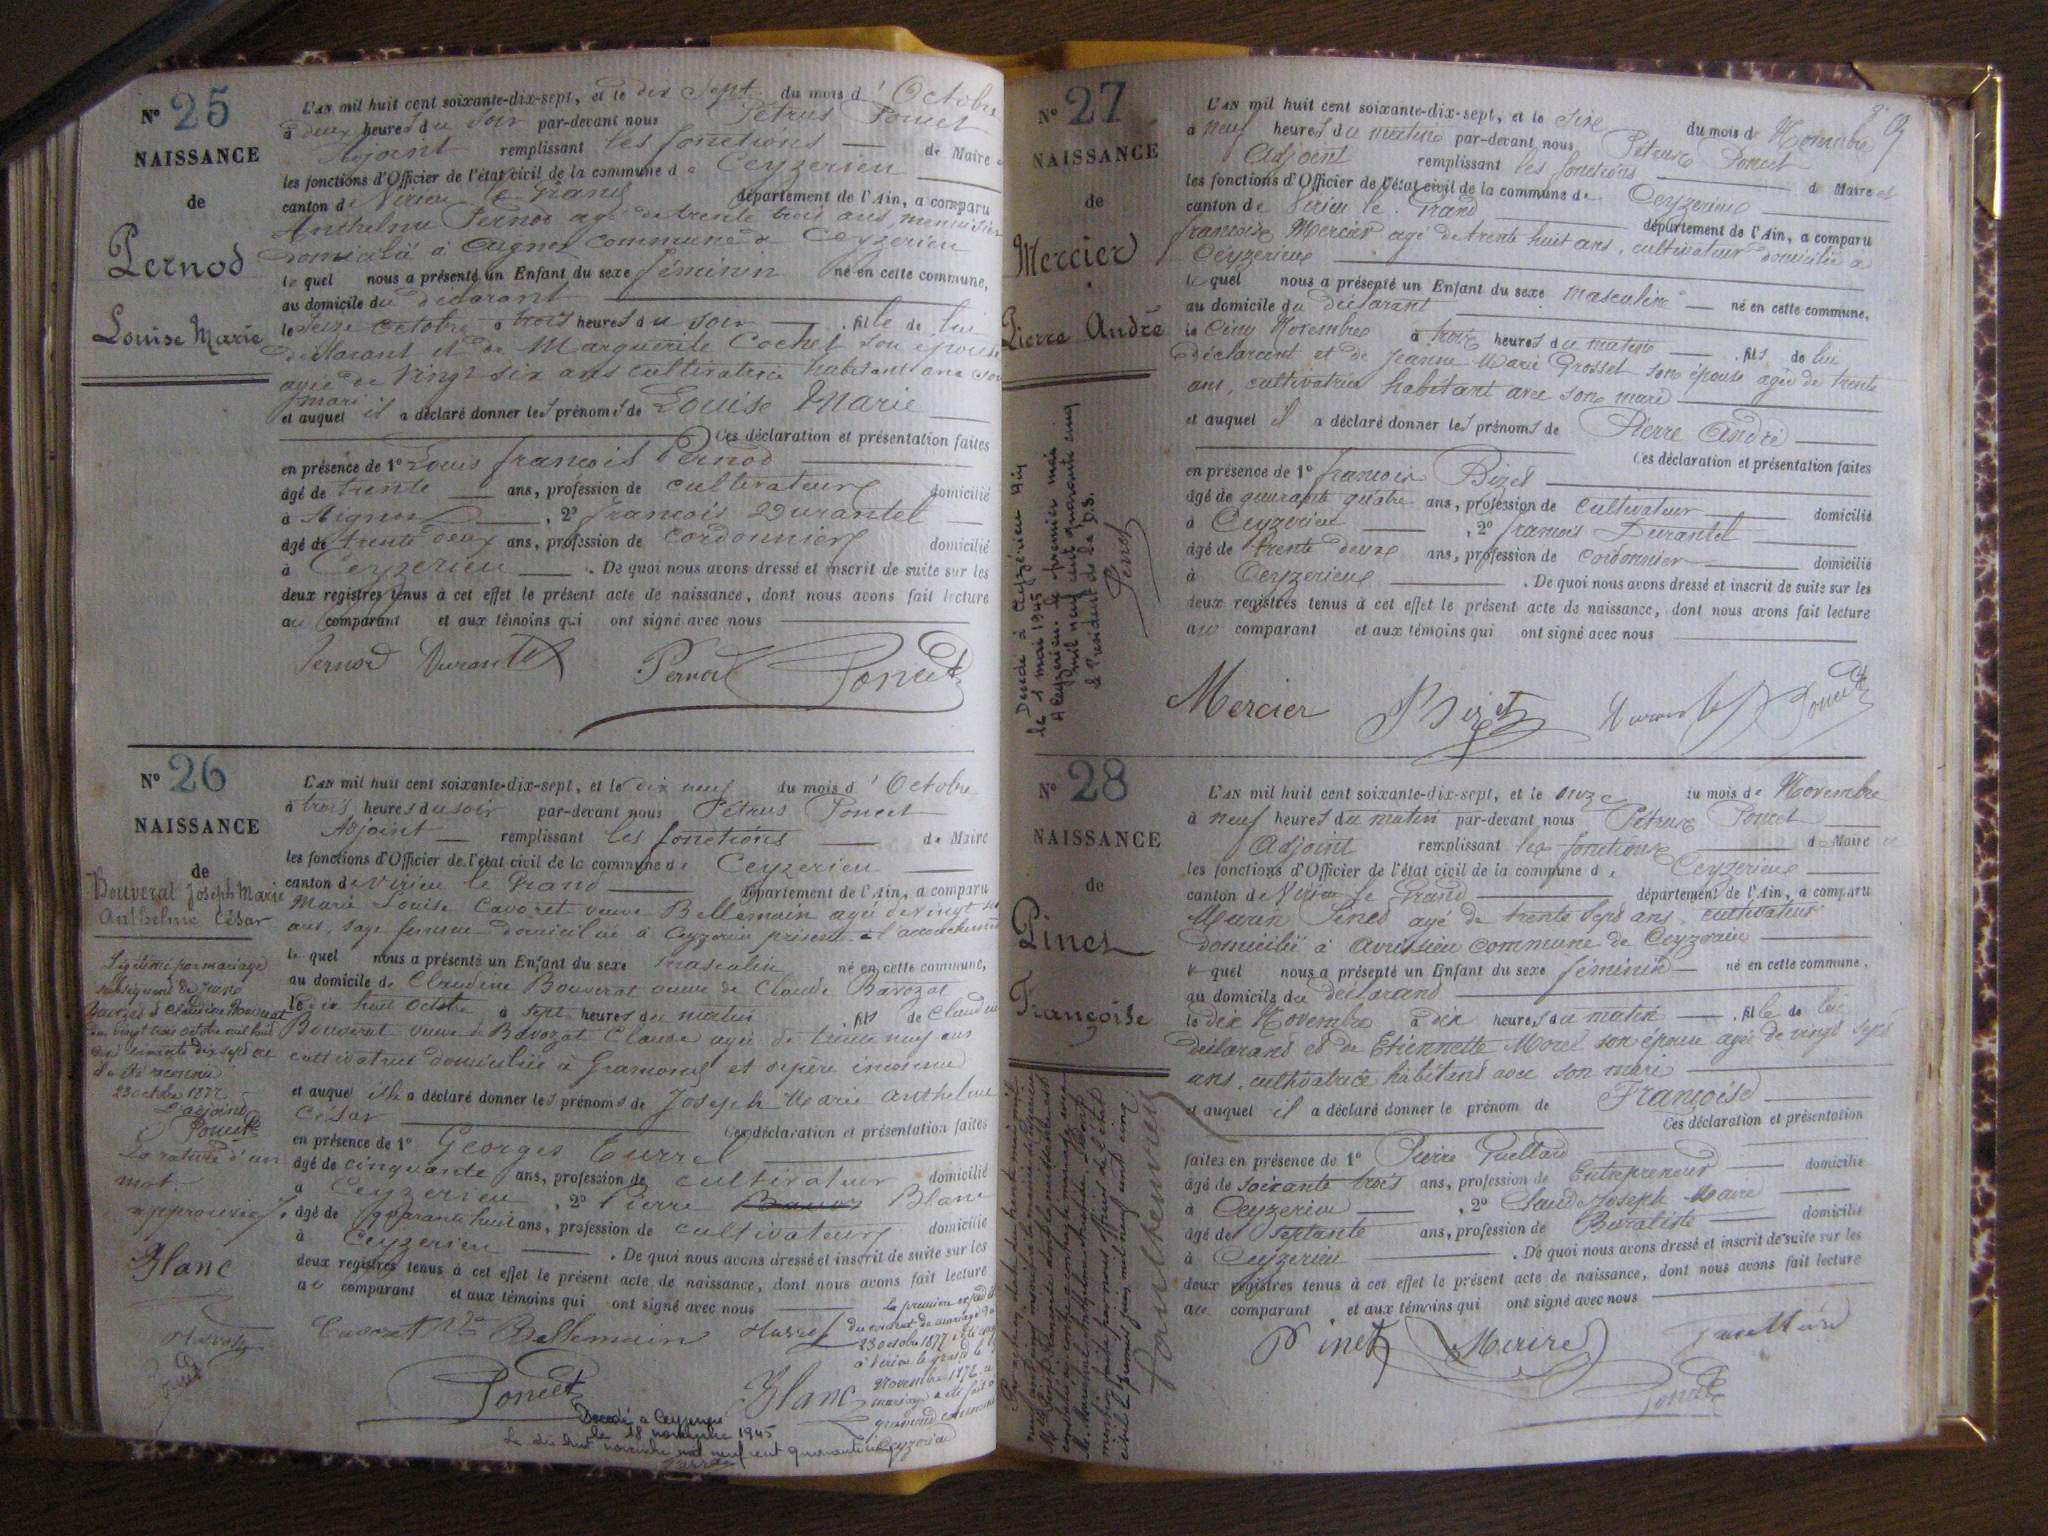 N° 25
NAISSANCE
de
Pernod
Louise Marie
L'AN mil huit cent soixante-dix-sept, et le dix sept du mois d'Octobre
à deux heures du soir par-devant nous Pétrus Poncet
Adjoint remplissant les fonctions de Maire
les fonctions d'Officier de l'état civil de la commune de Ceyzerieu
canton de Virieu le Grand département de l'Ain, a comparu
Anthelme Pernod agé de trente trois ans, menuisier
domicilié à Aignoz commune de Ceyzerieu
le quel nous a présenté un Enfant du sexe féminin né en cette commune,
au domicile du déclarant
le seize octobre à trois heures du soir . fille de lui
déclarant et de Marguerite Cochet son épouse
agée de vingt six ans cultivatrice habitant avec son
mari
et auquel il a déclaré donner les prénoms de Louise Marie
Ces déclaration et présentation faites
en présence de 1° Louis françois Pernod
âgé de trente ans, profession de cultivateur domicilié
à Aignoz , 2° françois Durantel
âgé de trente deux ans, profession de cordonnier domicilié
à Ceyzerieu . De quoi nous avons dressé et inscrit de suite sur les
deux registres tenus à cet effet le présent acte de naissance, dont nous avons fait lecture
au comparant et aux témoins qui ont signé avec nous
Pernod Durantel Pernod Poncet
N° 26
NAISSANCE
de
Bouverat Joseph Marie
Anthelme César
Légitimé par mariage
subséquent de
et Claudine Bouverat
du vingt trois octobre mil huit
cent soixante dix sept
23 octobre 1877
L'adjoint
Poncet
La rature d'un
mot
approuvée
Blanc
L'AN mil huit cent soixante-dix-sept, et le dix neuf du mois d'Octobre
à trois heures du soir par-devant nous Pétrus Poncet
Adjoint remplissant les fonctions de Maire
les fonctions d'Officier de l'état civil de la commune de Ceyzerieu
canton de Virieu le Grand département de l'Ain, a comparu
Marie Louise Cavoret veuve Bellemain agée de vingt
ans, sage femme domiciliée à Ceyzerieu présente à l'accouchement
le quel nous a présenté un Enfant du sexe masculin né en cette commune,
au domicile de Claudine Bouverat veuve de Claude Bavozat
le dix huit octobre à sept heures du matin . fils de Claudine
Bouverat veuve de Bavozat Claude agée de trente neuf ans
cultivatrice domiciliée à Gramond et de père inconnu
et auquel elle a déclaré donner les prénoms de Joseph Marie Anthelme
César Ces déclaration et présentation faites
en présence de 1° Georges
âgé de cinquante ans, profession de cultivateur domicilié
à Ceyzerieu , 2° Pierre Blanc
âgé de quarante huit ans, profession de cultivateur domicilié
à Ceyzerieu . De quoi nous avons dressé et inscrit de suite sur les
deux registres tenus à cet effet le présent acte de naissance, dont nous avons fait lecture
au comparant et aux témoins qui ont signé avec nous
Cavoret Bellemain
Poncet Blanc
La première expédition
du contrat de mariage du
23 octobre 1877
à Virieu le grand le
Novembre 1877
Ceyzerieu
Décédé à Ceyzerieu
le 18 novembre 1945
Le dix huit novembre mil neuf cent quarante cinq
N° 27
NAISSANCE
de
Mercier
Pierre André
Décédé à Ceyzérieu Ain
le 1 mai 1945
A Ceyzerieu le premier mai
mil neuf cent quarante cinq
le Président de la D.S.
Perrot
L'AN mil huit cent soixante-dix-sept, et le six du mois de Novembre
à neuf heures du matin par-devant nous Pétrus Poncet
Adjoint remplissant les fonctions de Maire et
les fonctions d'Officier de l'état civil de la commune de Ceyzerieu
canton de Virieu le Grand département de l'Ain, a comparu
françois Mercier agé de trente huit ans, cultivateur domicilié à
Ceyzerieu
le quel nous a présenté un Enfant du sexe masculin né en cette commune,
au domicile du déclarant
le cinq Novembre à trois heures du matin . fils de lui
déclarant et de Jeanne Marie Grosset son épouse agée de trente
ans, cultivatrice habitant avec son mari
et auquel il a déclaré donner les prénoms de Pierre André
Ces déclaration et présentation faites
en présence de 1° françois Bizet
âgé de quarante quatre ans, profession de cultivateur domicilié
à Ceyzerieu , 2° françois Durantel
âgé de trente deux ans, profession de cordonnier domicilié
à Ceyzerieu . De quoi nous avons dressé et inscrit de suite sur les
deux registres tenus à cet effet le présent acte de naissance, dont nous avons fait lecture
au comparant et aux témoins qui ont signé avec nous
Mercier Bizet Durantel Poncet
N° 28
NAISSANCE
de
Pinet
Françoise
L'AN mil huit cent soixante-dix-sept, et le onze du mois de Novembre
à neuf heures du matin par-devant nous Pétrus Poncet
Adjoint remplissant les fonctions de Maire et
les fonctions d'Officier de l'état civil de la commune de Ceyzerieu
canton de Virieu le Grand département de l'Ain, a comparu
Pinet agé de trente sept ans, cultivateur
domicilié à Avrissieu commune de Ceyzerieu
le quel nous a présenté un Enfant du sexe féminin né en cette commune,
au domicile du déclarant
le dix Novembre à dix heures du matin . fille de lui
déclarant et de Etiennette Morel son épouse agée de vingt sept
ans, cultivatrice habitant avec son mari
et auquel il a déclaré donner le prénom de Françoise
Ces déclaration et présentation
faites en présence de 1° Pierre domicilié
âgé de soixante trois ans, profession de Entrepreneur
à Ceyzerieu , 2° Claude Joseph Maire
âgé de septante ans, profession de Buraliste domicilié
à Ceyzerieu . De quoi nous avons dressé et inscrit de suite sur les
deux registres tenus à cet effet le présent acte de naissance, dont nous avons fait lecture
au comparant et aux témoins qui ont signé avec nous
Pinet Maire
Poncet